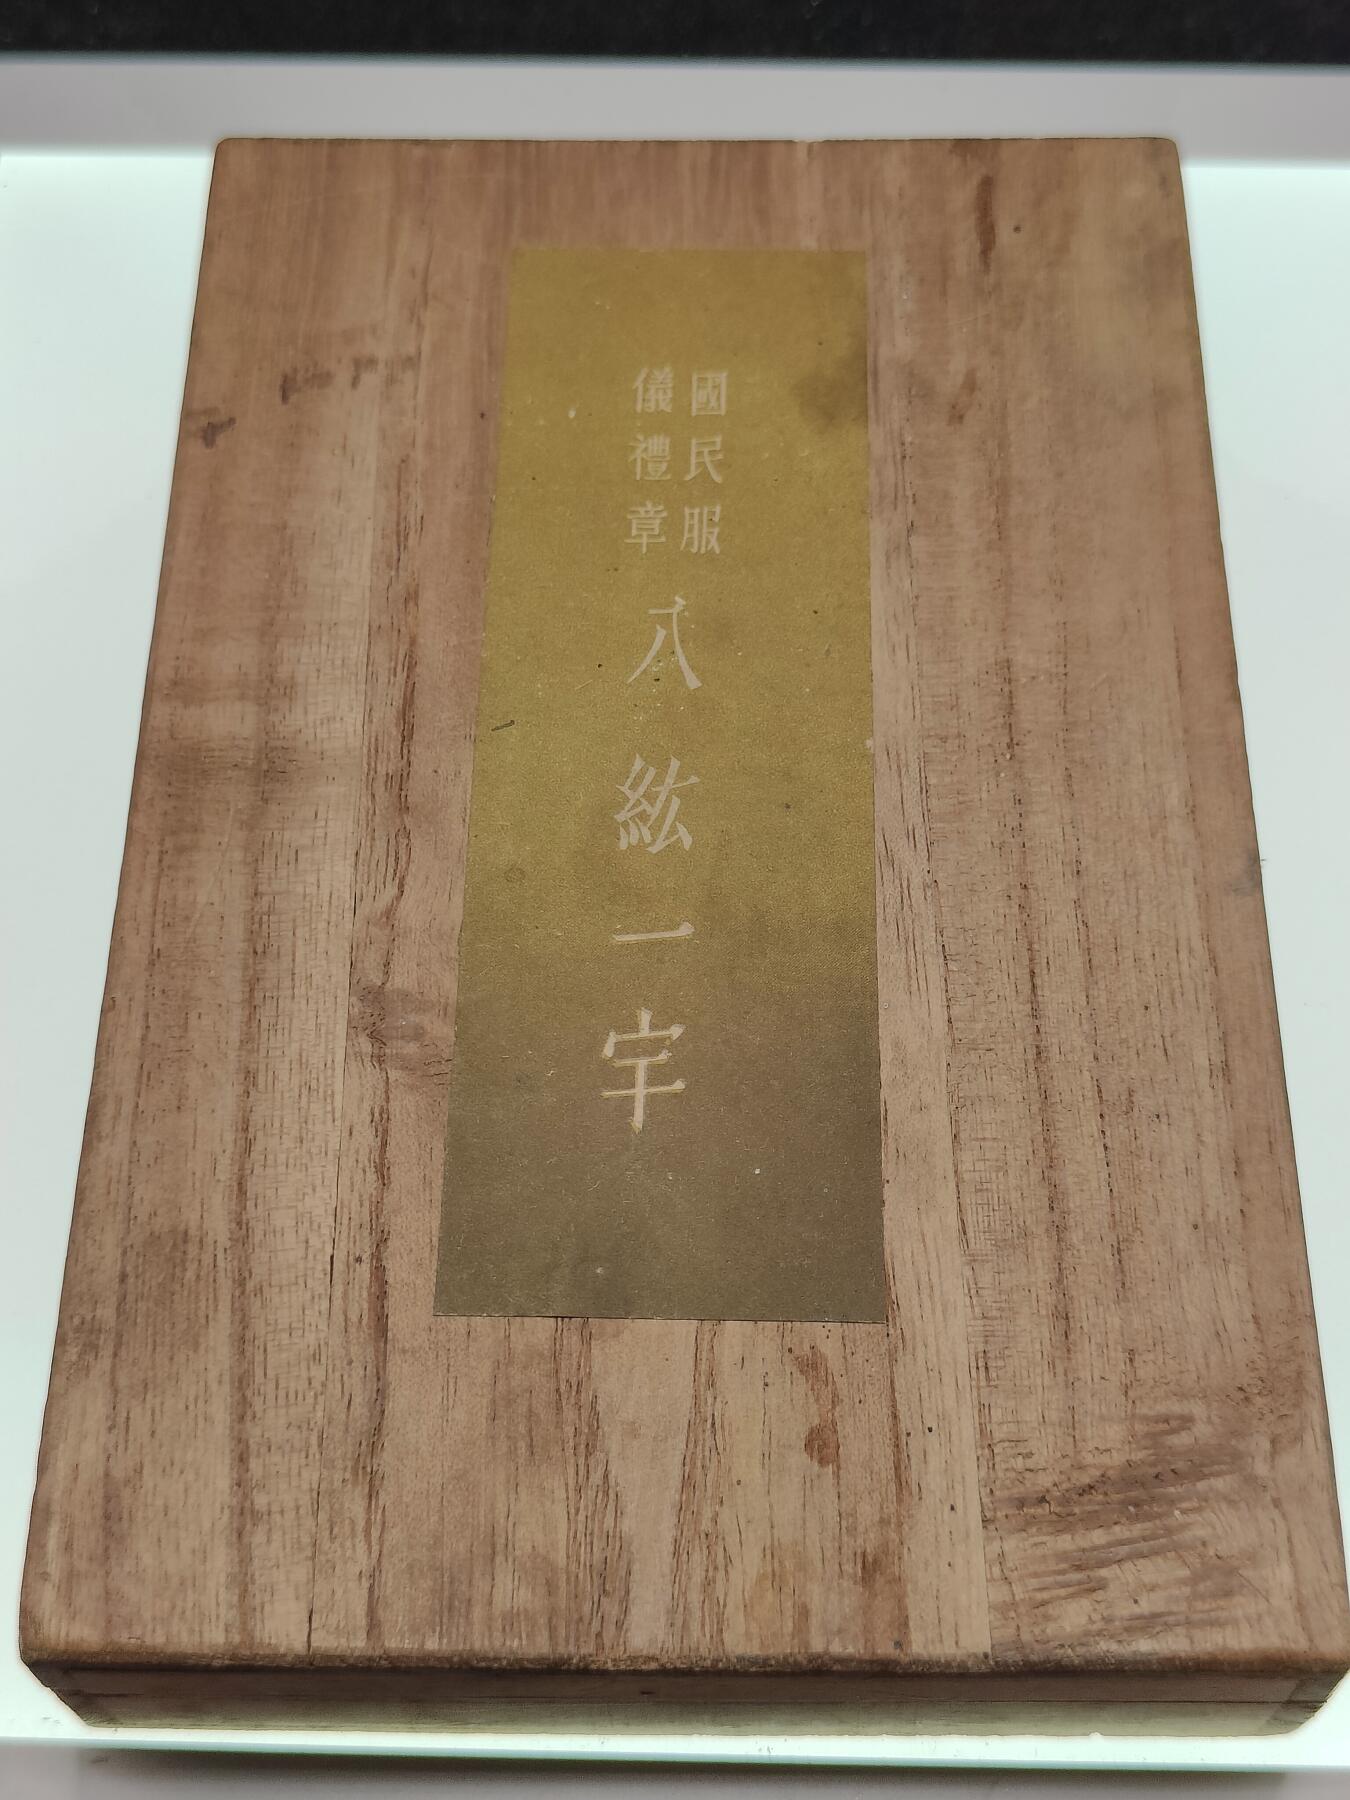 國民服
儀禮章
八紘一宇